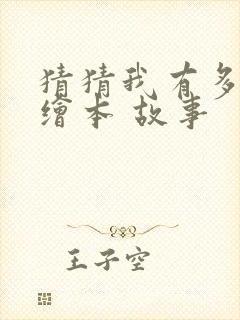 猜猜我有多
繪本 故事
王子空